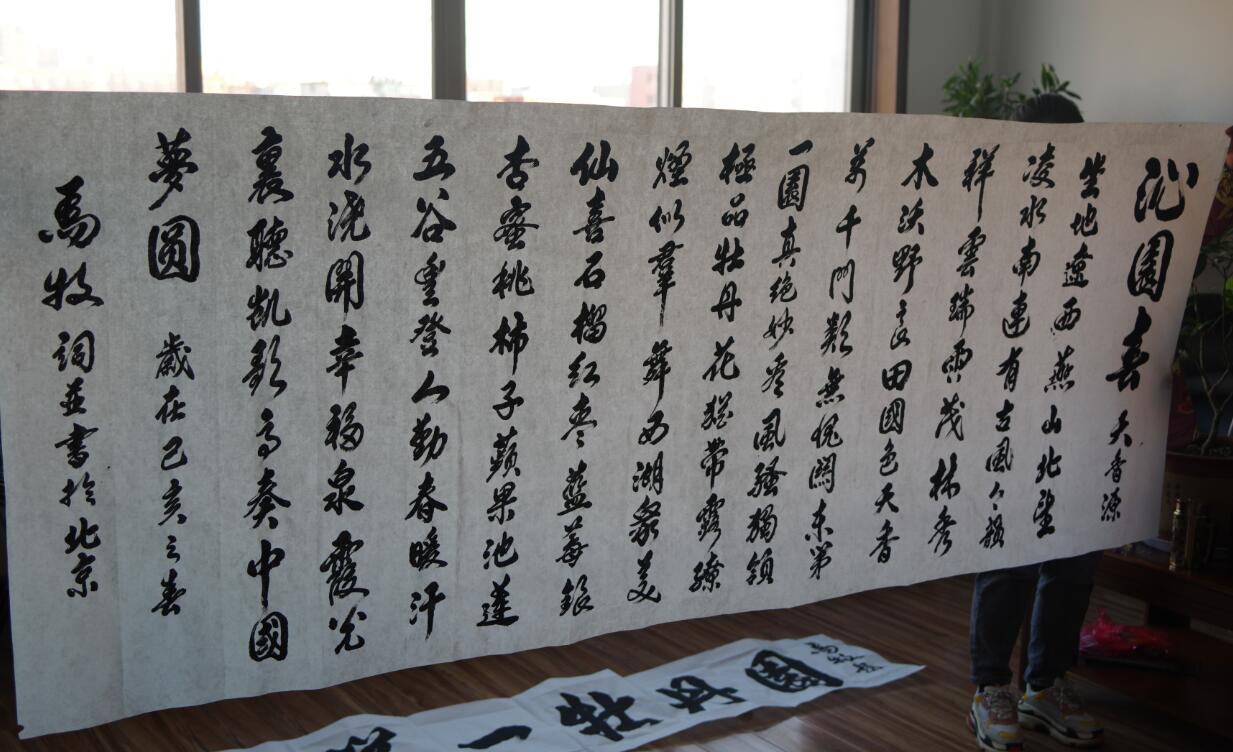 沁園春 天香源
坐地遼西燕山北望
凌水南連有古風
祥雲瑞雨茂林秀
木沃野良田國色天香
萬千門類無愧關東第
一園真絕妙看風騷獨領
極品牡丹花猶帶露繚
煙似羣舞西湖眾美
仙喜石榴紅棗藍莓銀
杏蜜桃柿子蘋果池蓮
五谷豐登人勤春暖汗
水澆開幸福泉霞光
裏聽凱歌高奏中國
夢圓 歲在己亥之春
馬牧詞並書於北京
一牡丹園
馬牧題